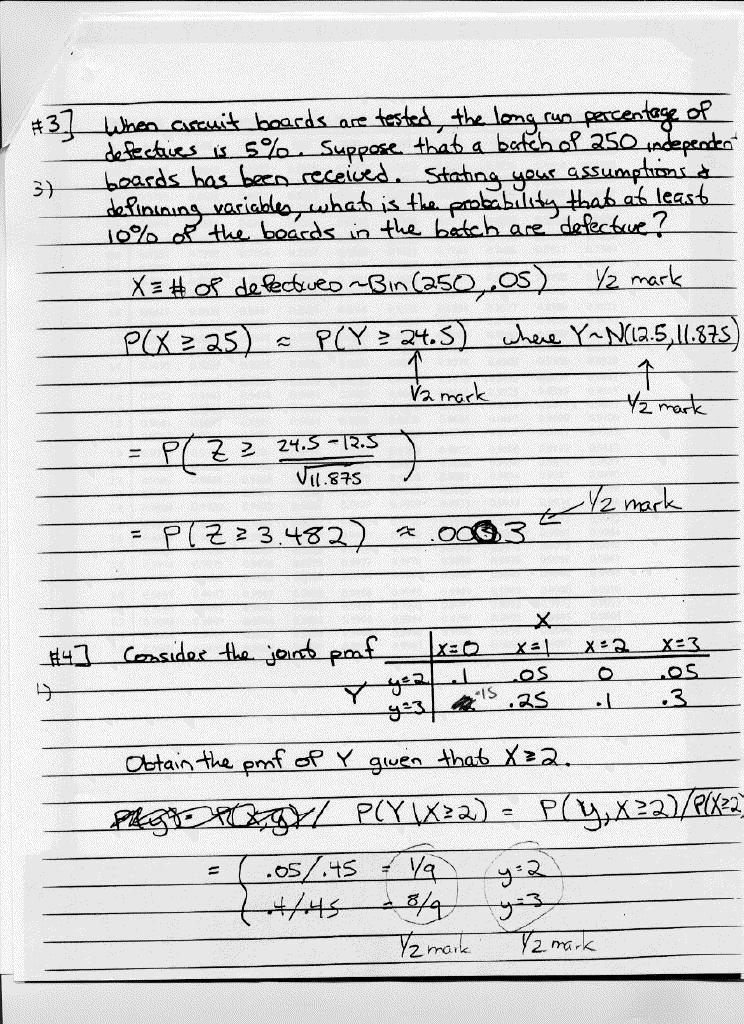 #3] When circuit boards are tested, the long run percentage of
defectives is 5%. Suppose that a batch of 250 independent
3) boards has been received. Stating your assumptions &
definining variables, what is the probability that at least
10% of the boards in the batch are defective?
X ≡ # of defectives ~ Bin(250, .05) 1/2 mark
P(X ≥ 25) ≈ P(Y ≥ 24.5) where Y~N(12.5, 11.875)
↑ ↑
1/2 mark 1/2 mark
= P( Z ≥ (24.5 - 12.5)/√11.875 )
1/2 mark
= P(Z ≥ 3.482) ≈ .0003
X
#4] Consider the joint pmf x=0 x=1 x=2 x=3
y=2 .1 .05 0 .05
Y
y=3 .15 .25 .1 .3
Obtain the pmf of Y given that X ≥ 2.
P(Y|X≥2) = P(y, X≥2)/P(X≥2)
= { .05/.45 = 1/9 y=2
.4/.45 = 8/9 y=3
1/2 mark 1/2 mark